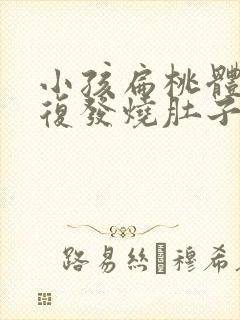 小孩扁桃體
復發燒肚子
路易絲 穆希